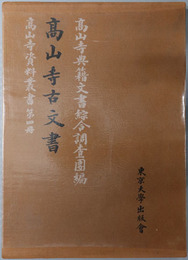 高山寺典籍文書綜合調査團編
高山寺古文書
高山寺資料叢書 第四冊
東京大學出版會